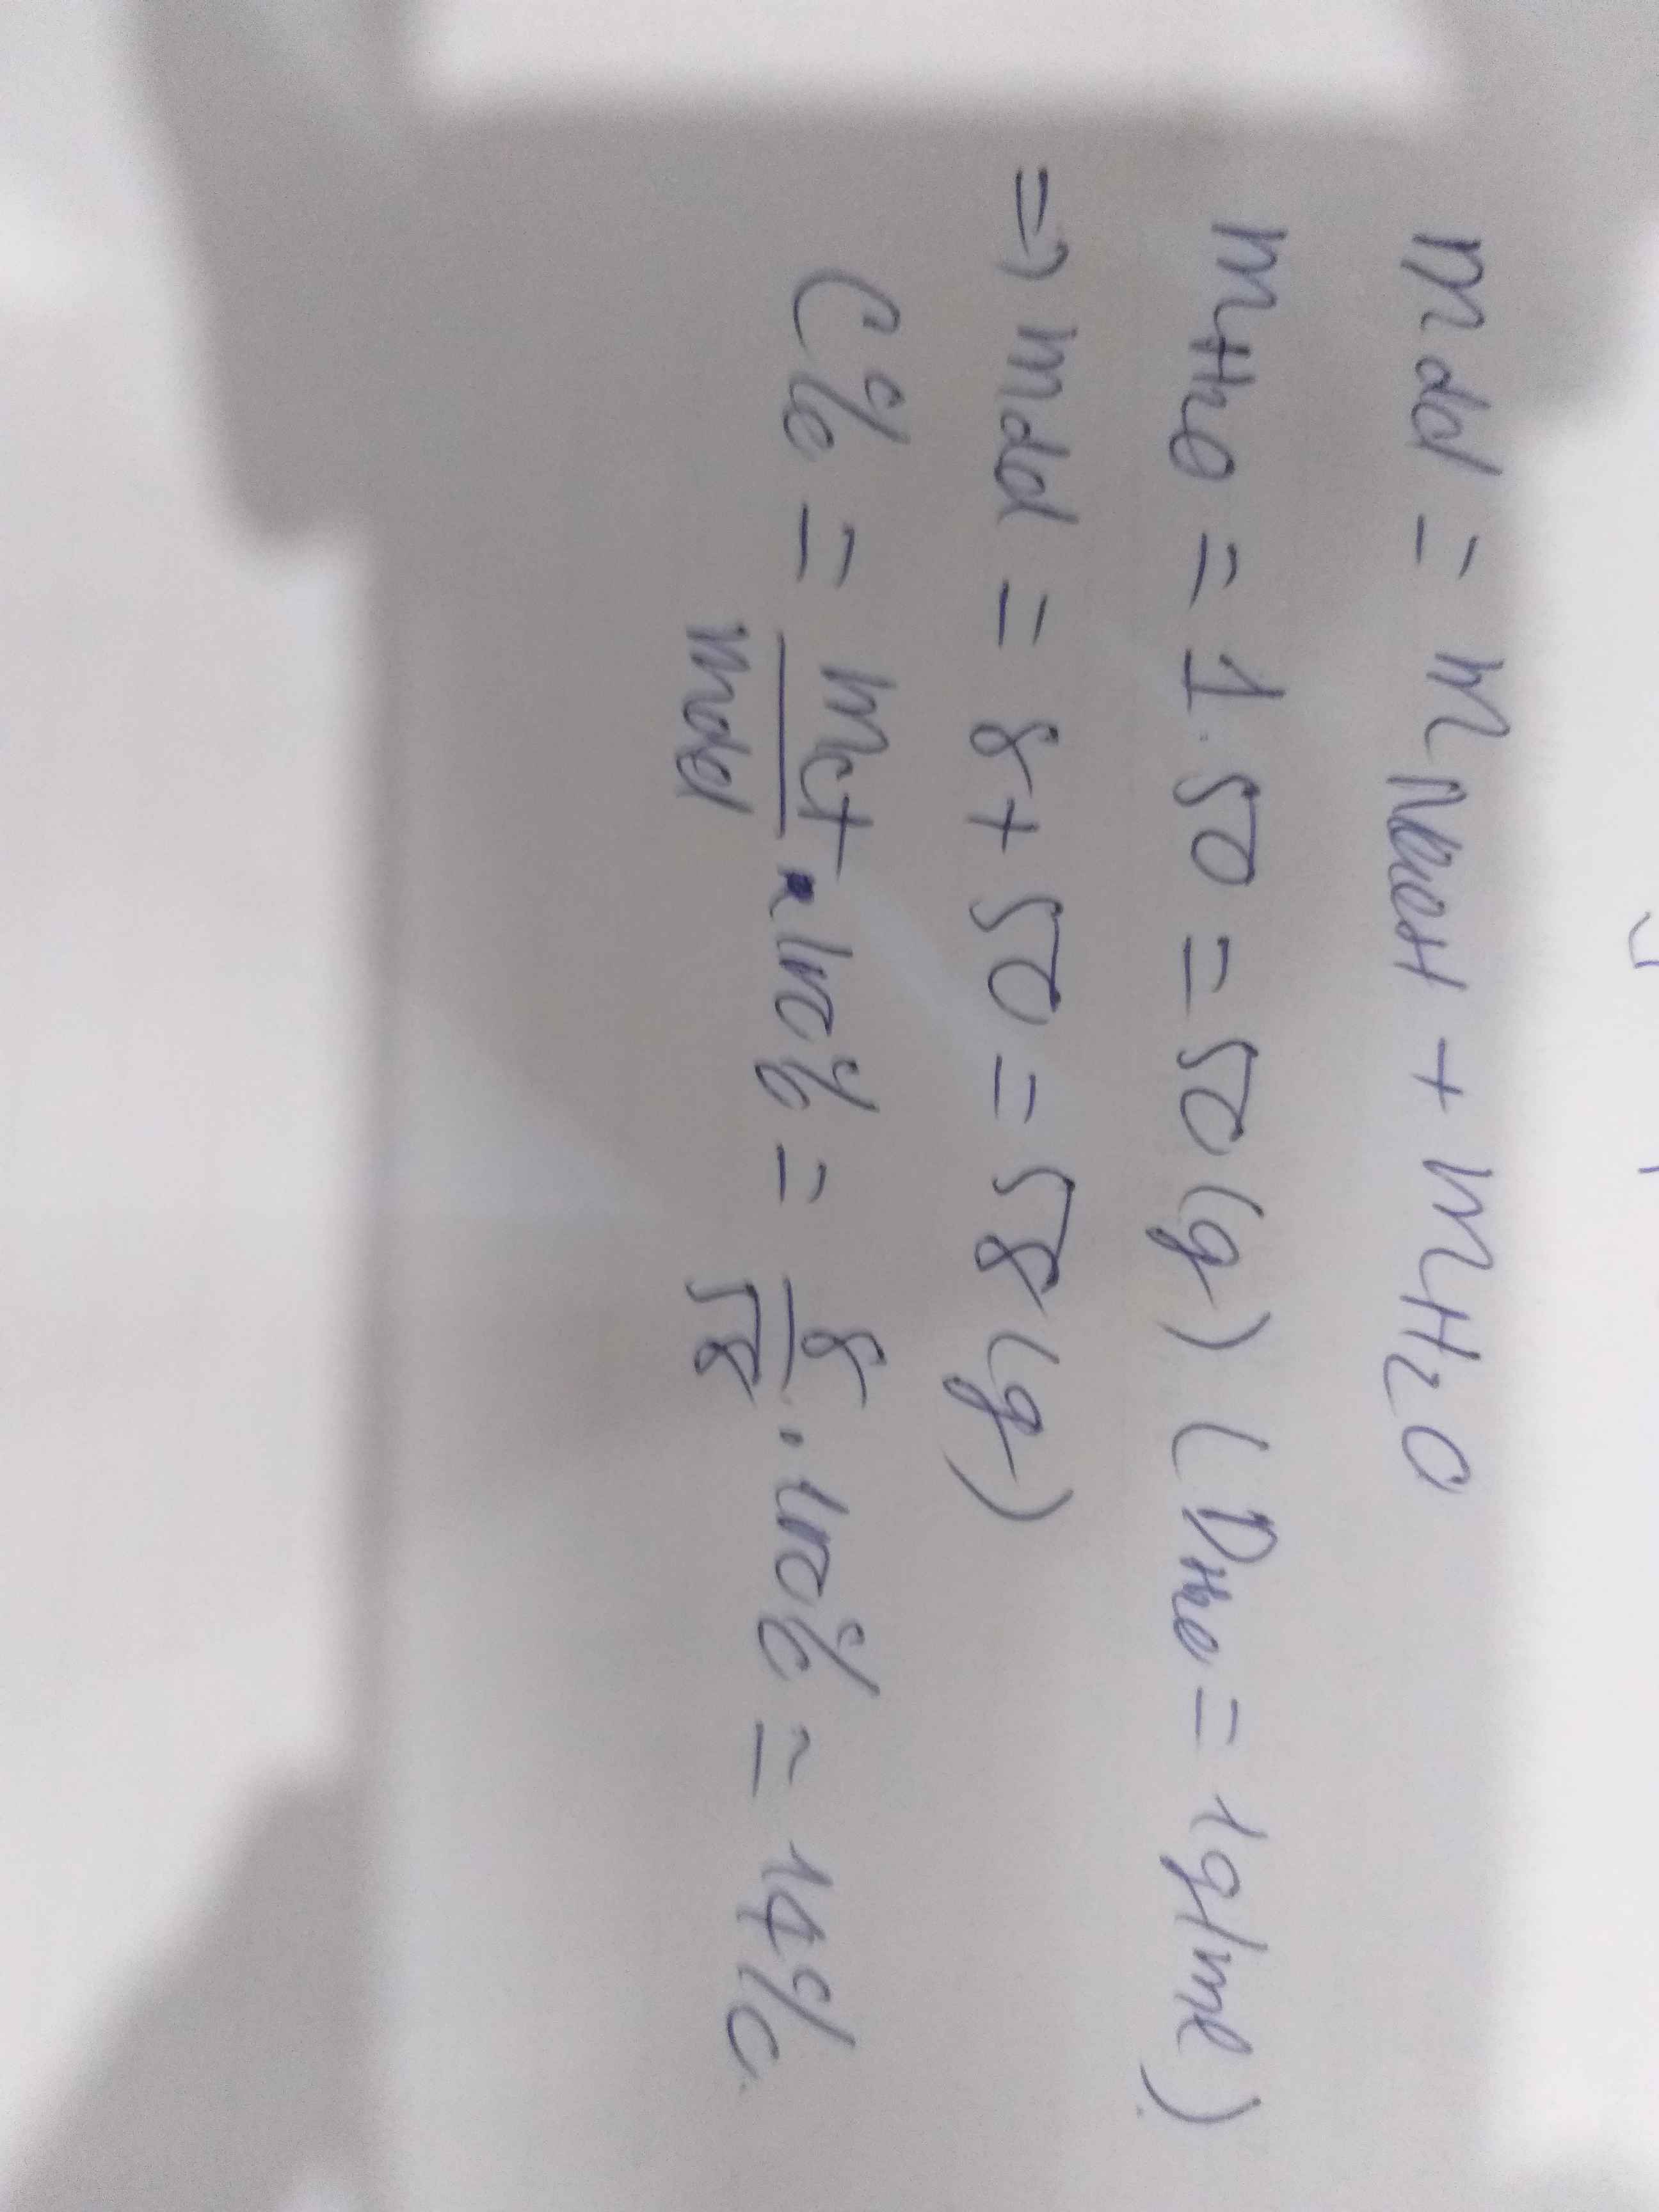 mdd = mNaOH + mH2O
mH2O = 1.50 = 50 (g) (DH2O = 1g/ml)
=> mdd = 8 + 50 = 58 (g)
C% = mct/mdd x100% = 8/58 . 100% = 14%